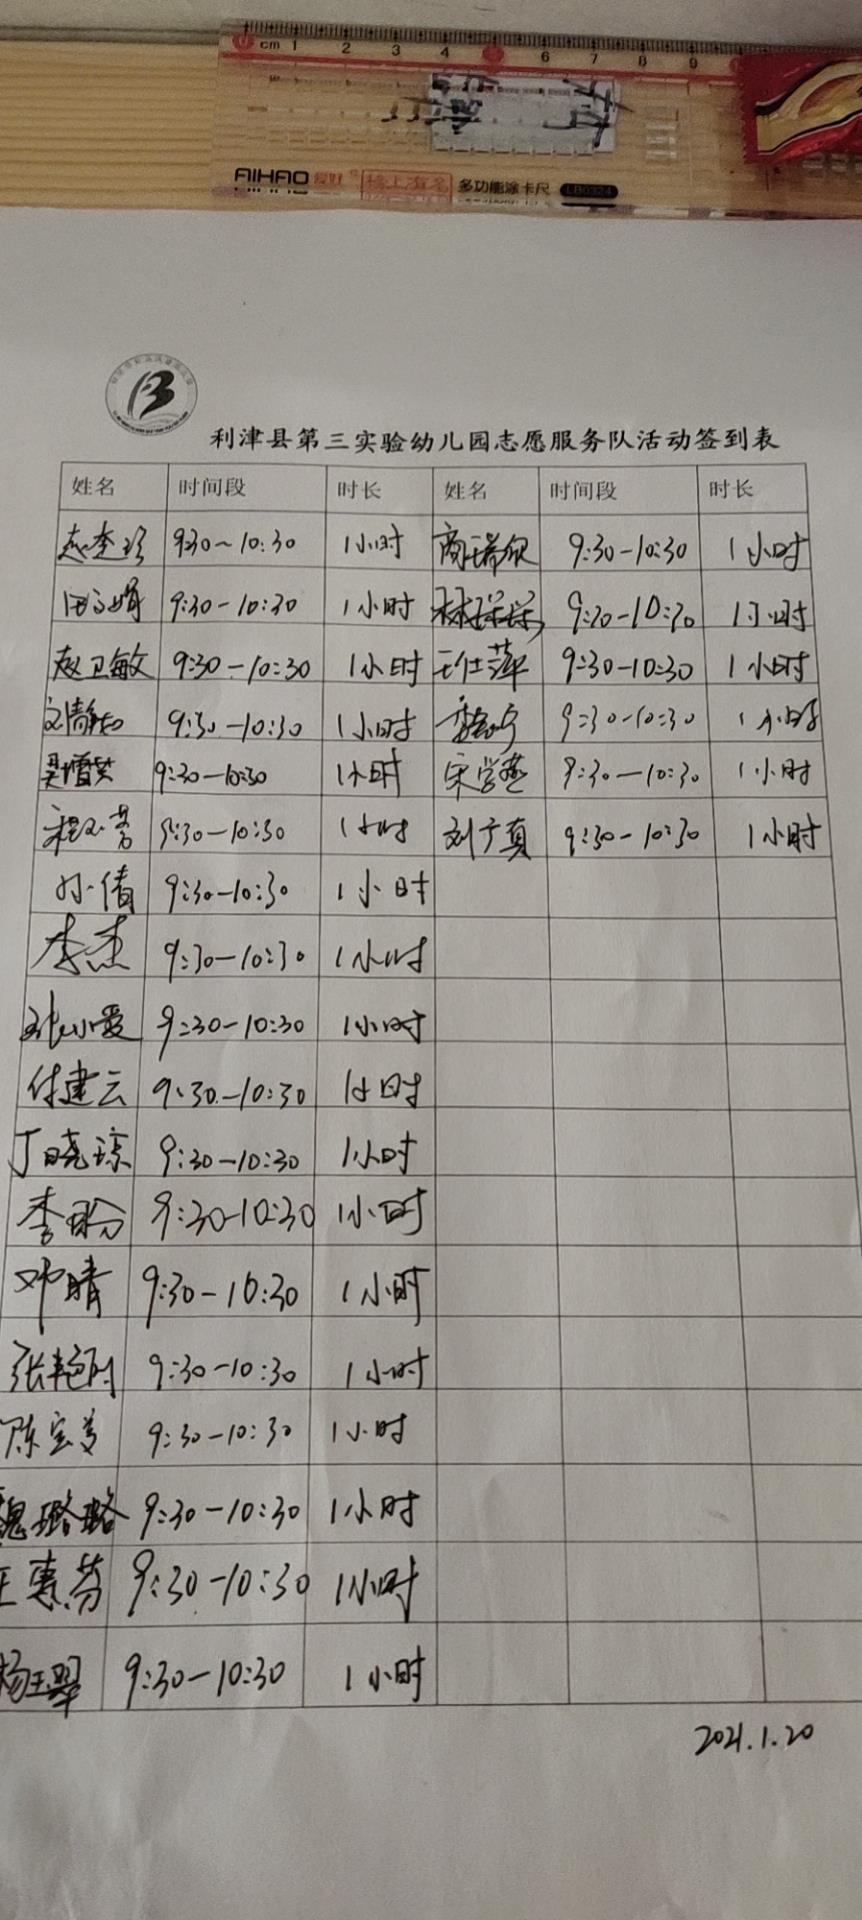 0 cm 1 2 3 4 5 6 7 8 9
AIHAO 爱好 榜上有名 多功能涂卡尺
利津县第三实验幼儿园志愿服务队活动签到表
姓名 时间段 时长 姓名 时间段 时长
930~10:30 1小时 商瑞欣 9:30-10:30 1小时
9:30-10:30 1小时 林琛琛 9:30-10:30 1小时
赵卫敏 9:30-10:30 1小时 王仕萍 9:30-10:30 1小时
9:30-10:30 1小时 9:30-10:30 1小时
9:30-10:30 1小时 宋学燕 9:30-10:30 1小时
9:30-10:30 1小时 刘于真 9:30-10:30 1小时
孙倩 9:30-10:30 1小时
李杰 9:30-10:30 1小时
张小爱 9:30-10:30 1小时
付建云 9:30-10:30 1小时
丁晓琼 9:30-10:30 1小时
李盼 9:30-10:30 1小时
邓晴 9:30-10:30 1小时
9:30-10:30 1小时
陈宝美 9:30-10:30 1小时
魏璐璐 9:30-10:30 1小时
王惠芬 9:30-10:30 1小时
杨玉翠 9:30-10:30 1小时
2021.1.20